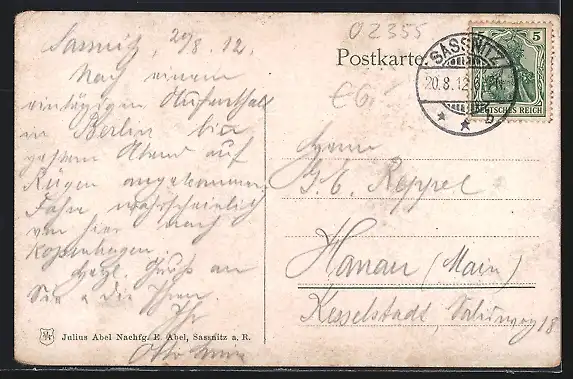 Sassnitz, 20/8. 12.
Nach einem
eintägigen Aufenthalt
in Berlin bin
gestern Abend auf
Rügen angekommen
Fahre wahrscheinlich
von hier nach
Kopenhagen.
Herzl. Gruß an
Sie u die Ihren
Ihr
Otto
02355
Postkarte
5
DEUTSCHES REICH
SASSNITZ
20.8.12.
b
€6
Herrn
Reppel
Hanau (Main)
Kesselstadt, 18
Julius Abel Nachfg. E. Abel, Sassnitz a. R.